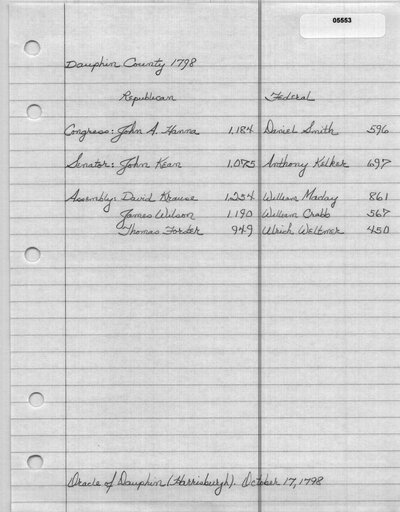 05553
Dauphin County 1798
Republican Federal
Congress: John A. Hanna 1,184 Daniel Smith 596
Senator: John Kean 1,075 Anthony Kelker 697
Assembly: David Krause 1,254 William Maclay 861
James Wilson 1,190 William Crabb 567
Thomas Forster 949 Ulrich Weltmer 450
Oracle of Dauphin (Harrisburgh). October 17, 1798